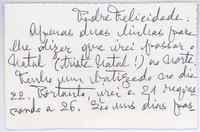 Padre Felicidade:
Apenas duas linhas para
lhe dizer que irei passar o
Natal (triste Natal!) ao Norte.
Tenho um batizado no dia
22. Portanto, irei a 21 regres
sando a 26. São uns dias pas